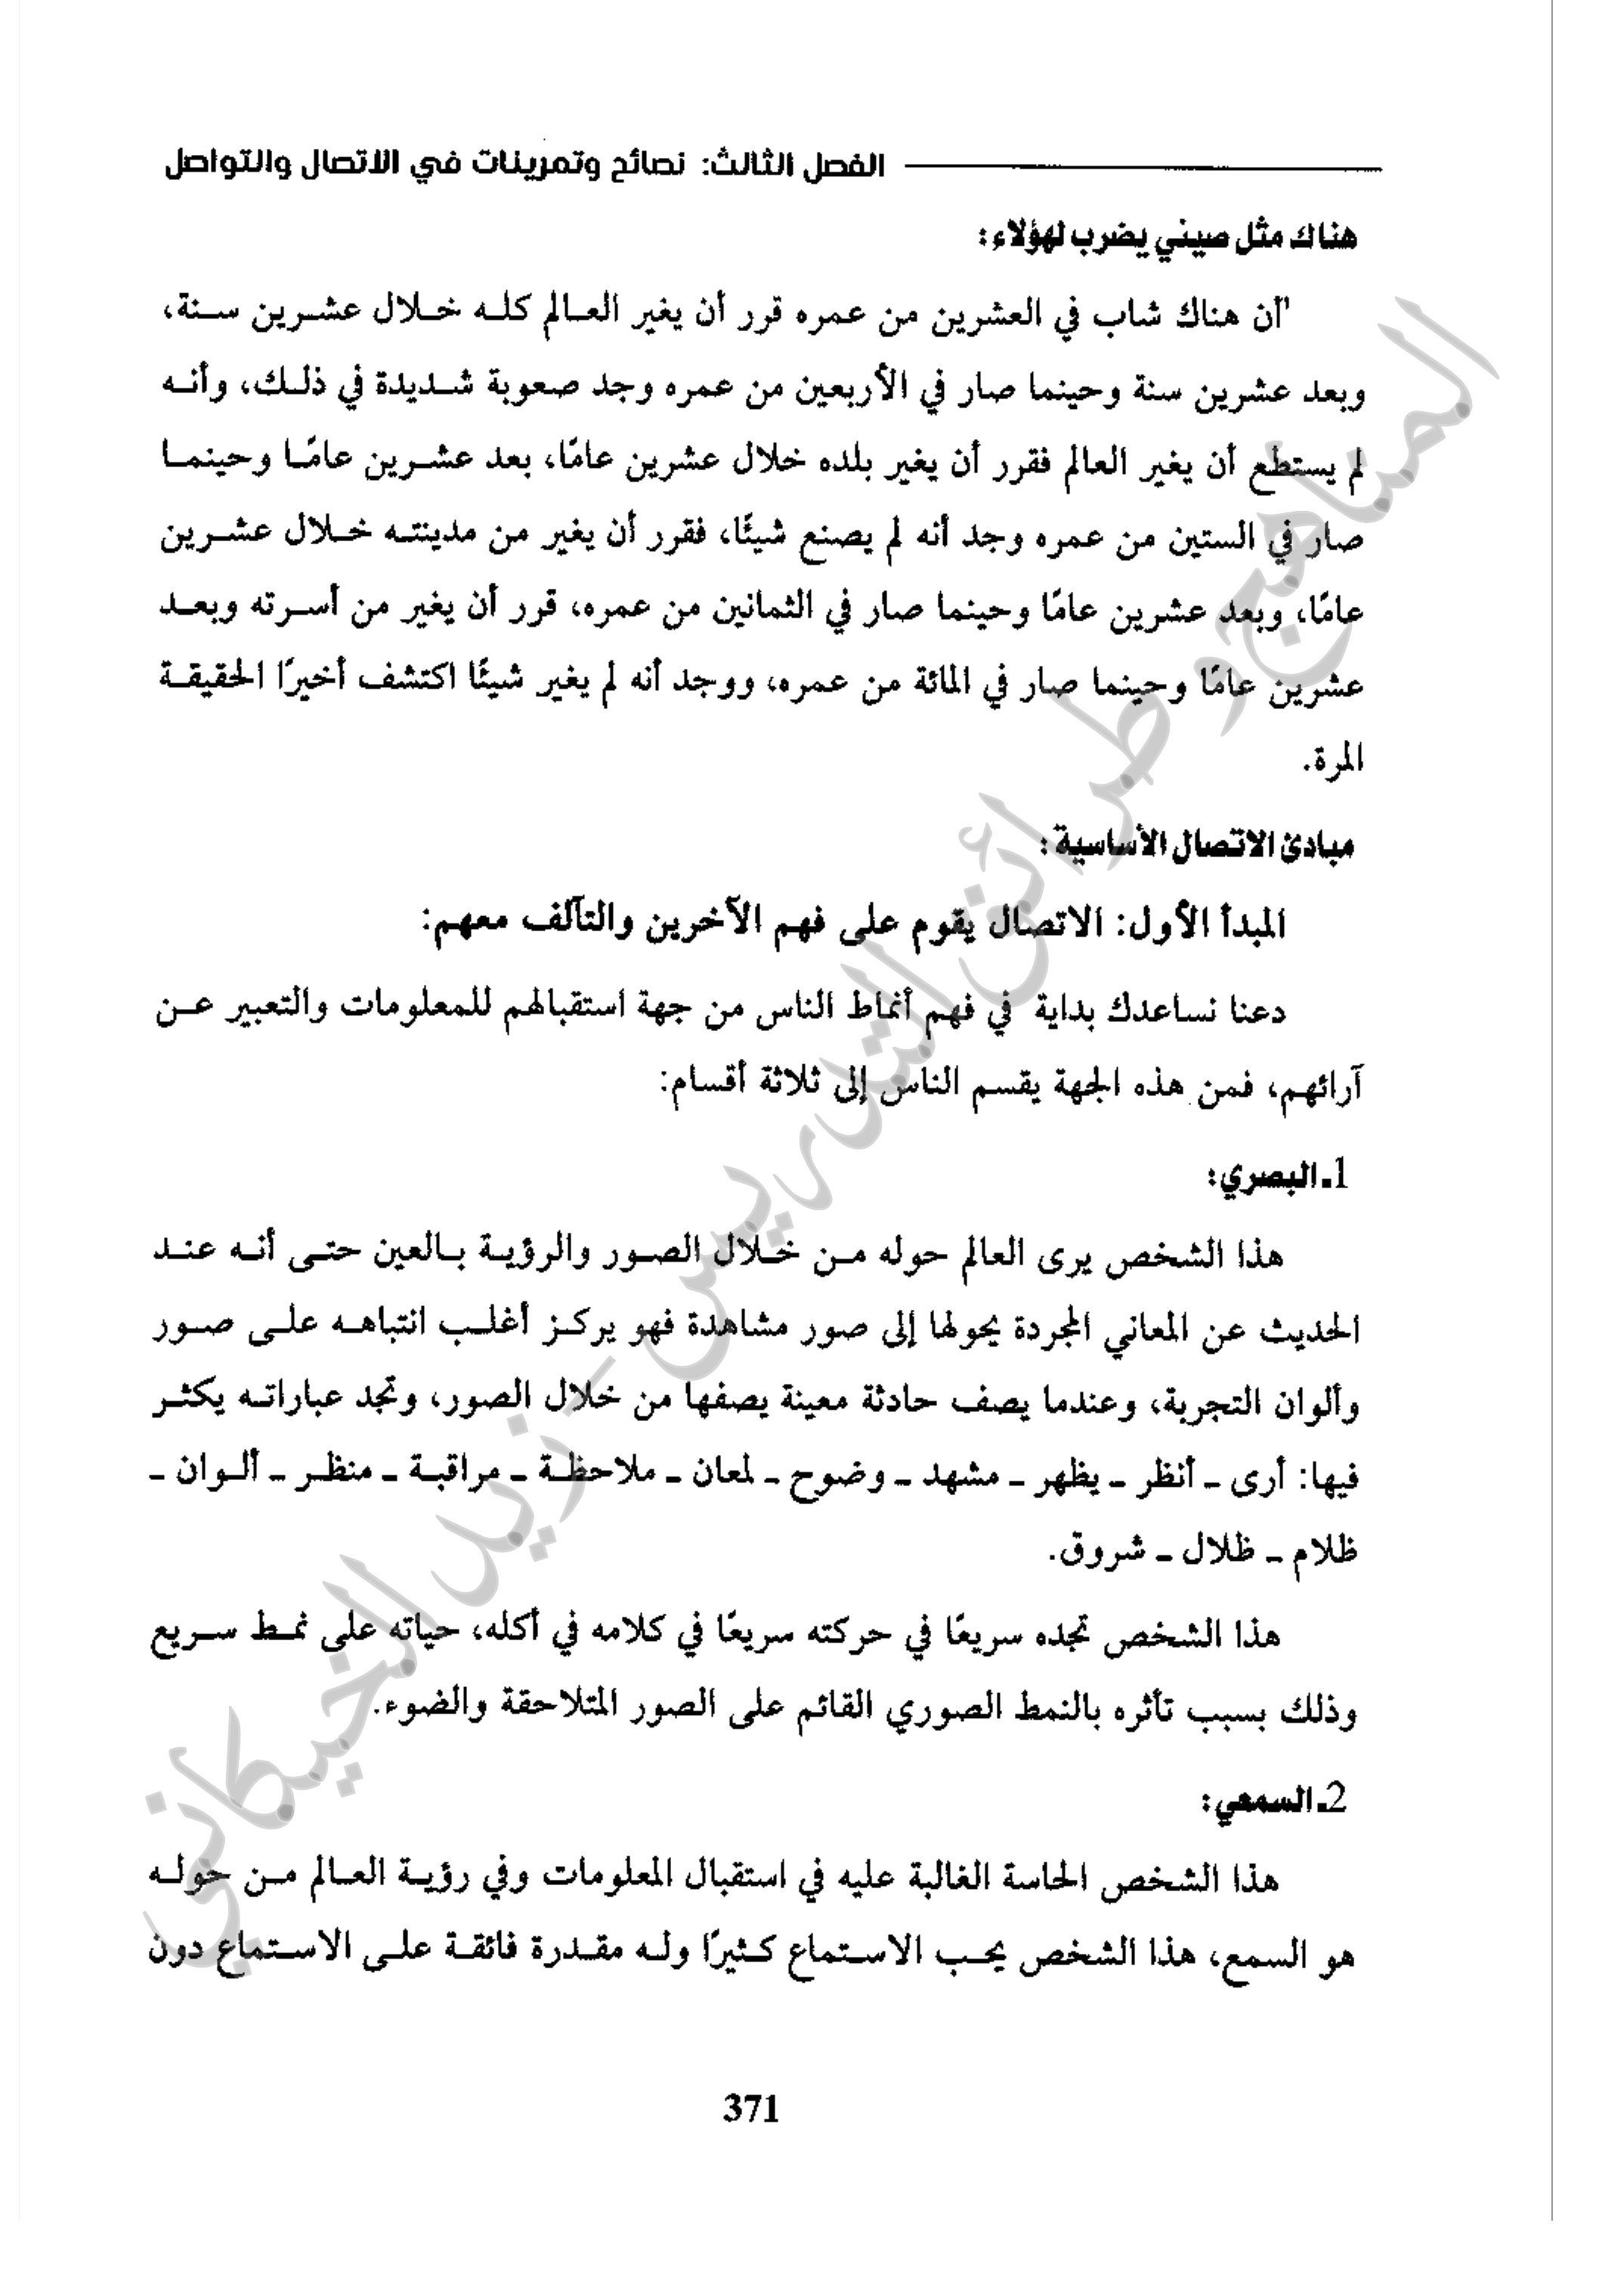 الفصل الثالث: نصائح وتمرينات في الاتصال والتواصل
هناك مثل صيني يضرب لهؤلاء:
"أن هناك شاب في العشرين من عمره قرر أن يغير العالم كله خلال عشرين سنة،
وبعد عشرين سنة وحينما صار في الأربعين من عمره وجد صعوبة شديدة في ذلك، وأنه
لم يستطع أن يغير العالم فقرر أن يغير بلده خلال عشرين عامًا، بعد عشرين عامًا وحينما
صار في الستين من عمره وجد أنه لم يصنع شيئًا، فقرر أن يغير من مدينته خلال عشرين
عامًا، وبعد عشرين عامًا وحينما صار في الثمانين من عمره، قرر أن يغير من أسرته وبعد
عشرين عامًا وحينما صار في المائة من عمره، ووجد أنه لم يغير شيئًا اكتشف أخيرًا الحقيقة
المرة.
مبادئ الاتصال الأساسية:
المبدأ الأول: الاتصال يقوم على فهم الآخرين والتآلف معهم:
دعنا نساعدك بداية في فهم أنماط الناس من جهة استقبالهم للمعلومات والتعبير عن
آرائهم، فمن هذه الجهة يقسم الناس إلى ثلاثة أقسام:
1ـ البصري:
هذا الشخص يرى العالم حوله من خلال الصور والرؤية بالعين حتى أنه عند
الحديث عن المعاني المجردة يحولها إلى صور مشاهدة فهو يركز أغلب انتباهه على صور
وألوان التجربة، وعندما يصف حادثة معينة يصفها من خلال الصور، وتجد عباراته يكثر
فيها: أرى ـ أنظر ـ يظهر ـ مشهد ـ وضوح ـ لمعان ـ ملاحظة ـ مراقبة ـ منظر ـ ألوان ـ
ظلام ـ ظلال ـ شروق.
هذا الشخص تجده سريعًا في حركته سريعًا في كلامه في أكله، حياته على نمط سريع
وذلك بسبب تأثره بالنمط الصوري القائم على الصور المتلاحقة والضوء.
2ـ السمعي:
هذا الشخص الحاسة الغالبة عليه في استقبال المعلومات وفي رؤية العالم من حوله
هو السمع، هذا الشخص يحب الاستماع كثيرًا وله مقدرة فائقة على الاستماع دون
371
المناهج وطرائق التدريس - زيد الخيكاني